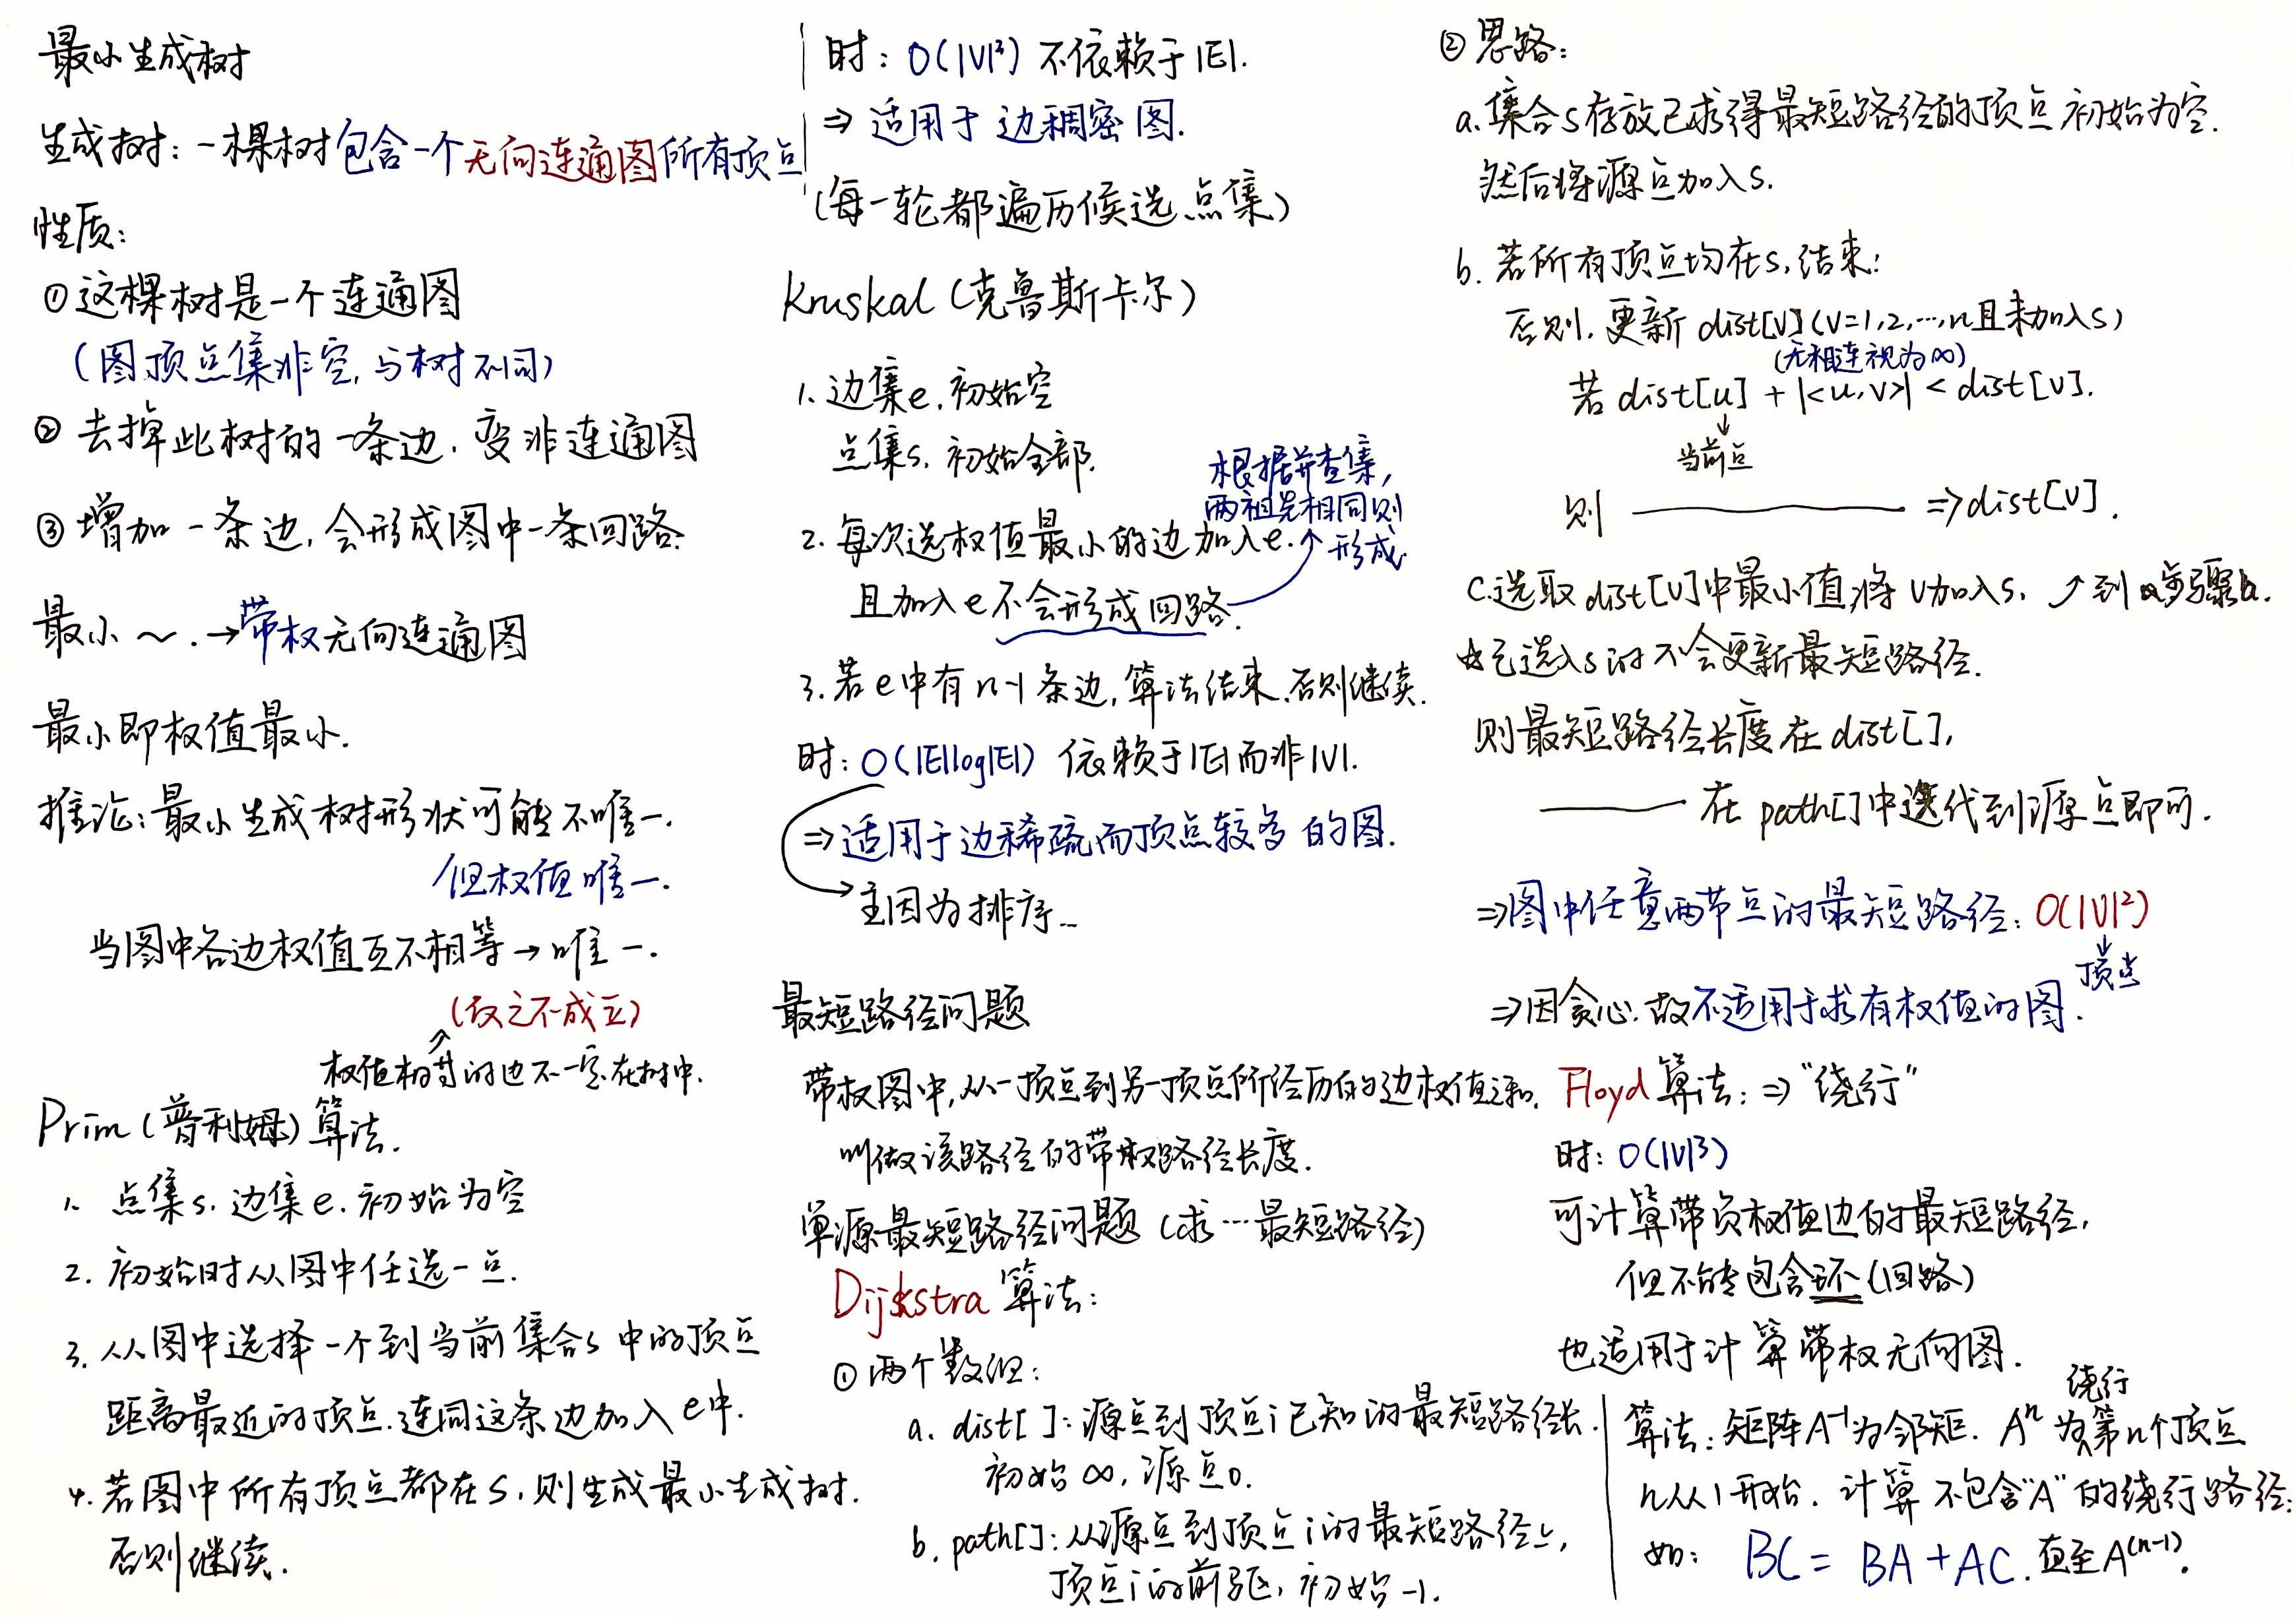 最小生成树
生成树：一棵树包含一个无向连通图所有顶点
性质：
①这棵树是一个连通图
（图顶点集非空，与树不同）
② 去掉此树的一条边，变非连通图
③ 增加一条边，会形成图中一条回路.
最小～.→带权无向连通图
最小即权值最小.
推论：最小生成树形状可能不唯一.
但权值唯一.
当图中各边权值互不相等→唯一.
（反之不成立）
权值相等的边不一定在树中.
Prim（普利姆）算法.
1. 点集s，边集e，初始为空
2. 初始时从图中任选一点.
3. 从图中选择一个到当前集合s中的顶点
距离最近的顶点.连同这条边加入e中.
4. 若图中所有顶点都在s，则生成最小生成树.
否则继续.
时：O(|V|²) 不依赖于|E|.
⇒ 适用于边稠密图.
（每一轮都遍历候选点集）
Kruskal（克鲁斯卡尔）
1. 边集e，初始空
点集s，初始全部.
根据并查集，
两祖先相同则
形成.
2. 每次选权值最小的边加入e.
且加入e不会形成回路.
3. 若e中有n-1条边，算法结束.否则继续.
时：O(|E|log|E|) 依赖于|E|而非|V|.
⇒适用于边稀疏而顶点较多的图.
→主因为排序...
最短路径问题
带权图中，从一顶点到另一顶点所经历的边权值之和.
叫做该路径的带权路径长度.
单源最短路径问题（求…最短路径）
Dijkstra 算法：
① 两个数组：
a. dist[ ]：源点到顶点i已知的最短路径长.
初始∞，源点0.
b. path[]：从源点到顶点i的最短路径上，
顶点i的前驱，初始-1.
② 思路：
a. 集合s存放已求得最短路径的顶点 初始为空.
然后将源点加入s.
b. 若所有顶点均在s，结束：
否则，更新 dist[v] (v=1,2,…,n且未加入s)
（无相连视为∞）
若 dist[u] + |<u,v>| < dist[v].
↓
当前点
则 ———— ⇒dist[v].
c. 选取dist[v]中最小值，将v加入s. ↗到步骤b.
已选入s的不会更新最短路径.
则最短路径长度在 dist[],
———— 在 path[]中迭代到源点即可.
⇒图中任意两节点的最短路径：O(|V|²)
↓
顶点
⇒因贪心.故不适用于求有权值的图.
Floyd 算法：⇒“绕行”
时：O(|V|³)
可计算带负权值边的最短路径，
但不能包含环（回路）
也适用于计算带权无向图.
绕行
算法：矩阵A⁻¹为邻矩. Aⁿ为第n个顶点
n从1开始. 计算不包含“A”的绕行路径：
如： BC = BA + AC. 直至A⁽ⁿ⁻¹⁾.